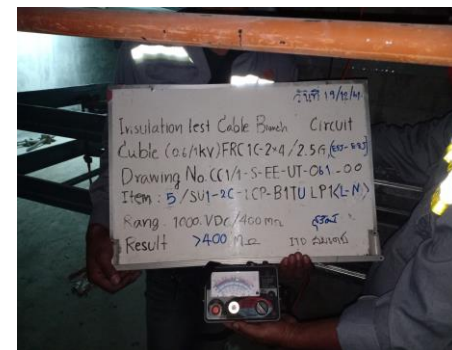 วันที่ 19/12/21
Insulation Test Cable Branch Circuit
Cable (0.6/1kV) FRC 1C-2×4/2.5G,
Drawing No. CC1/1-S-EE-UT-061-00
Item : 5/SU1-2C-LCP-B1TULP1(L-N)
Rang. 1000.VDC/400mΩ
Result >400 MΩ ITD